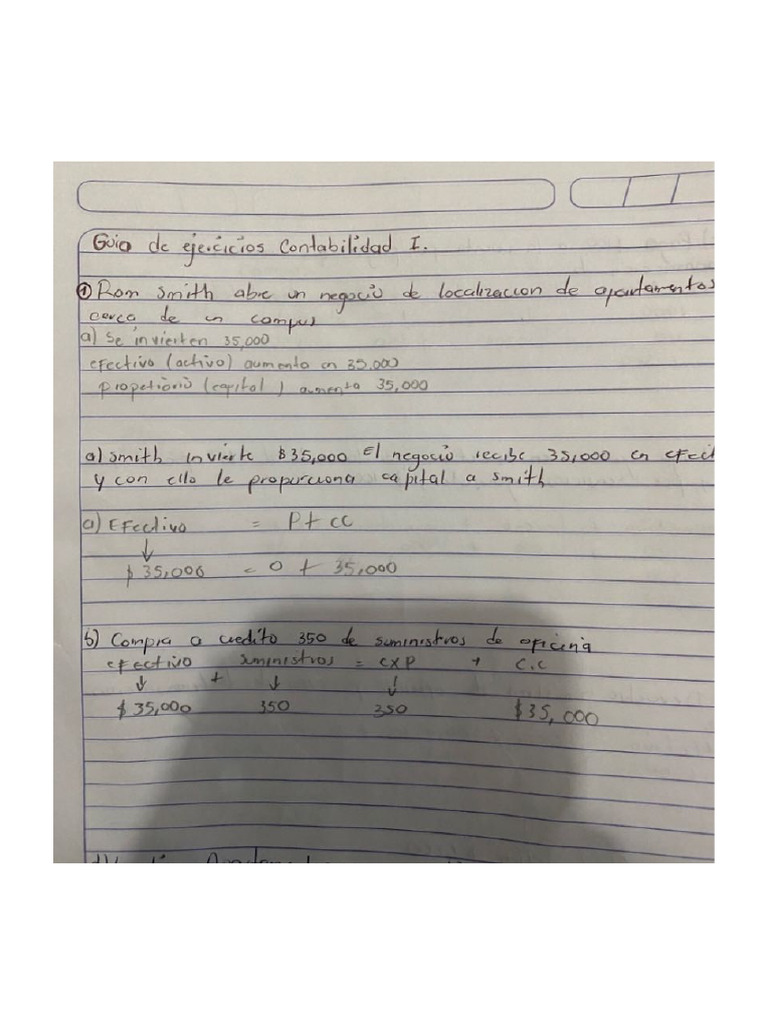 Guia de ejercicios Contabilidad I.
① Rom Smith abre un negocio de localizacion de apartamentos
cerca de un campus
a) Se invierten 35,000
efectivo (activo) aumento en 35.000
propetiorio (capital) aumento 35,000
a) smith invierte $35,000 El negocio recibe 35,000 en efect
y con ello le proporciona capital a smith
a) Efectivo = P + CC
↓
$35,000 = 0 + 35,000
b) Compra a credito 350 de suministros de oficina
efectivo + suministros = CXP + C.C
↓ ↓ ↓
$35,000 350 350 $35,000